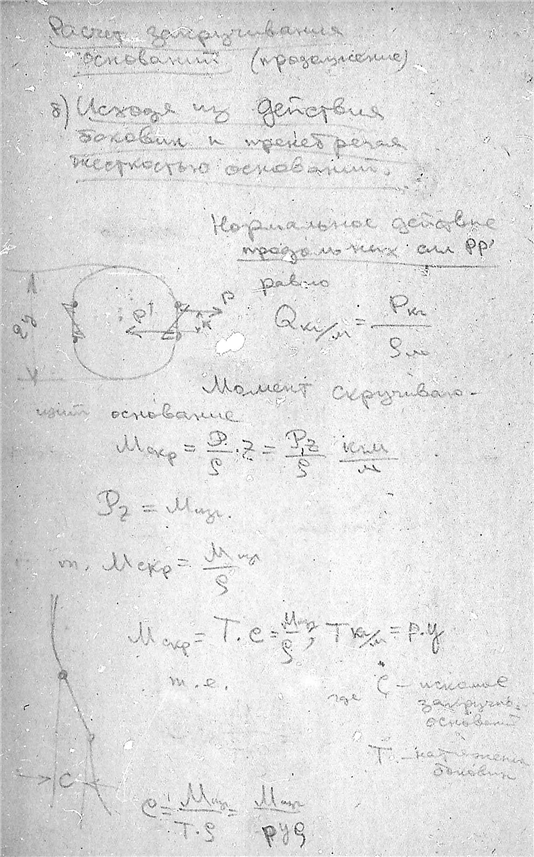 Расчет закручивания
оснований (продолжение)
б) Исходя из действия
боковин и пренебрегая
жесткостью оснований.
Нормальное действие
продольных сил PP'
равно
Q кг/м = P кг / ρ м
P
P'
z
2y
Момент скручиваю-
щий основание
M скр = P/ρ · z = Pz/ρ кгм/м
Pz = M изг.
т. M скр = M изг/ρ
M скр = T · c = M изг/ρ, T кг/м = p · y
т.е. где c – искомое
закручив.
оснований
T – натяжение
боковин
c
c = M изг / T · ρ = M изг / p y ρ